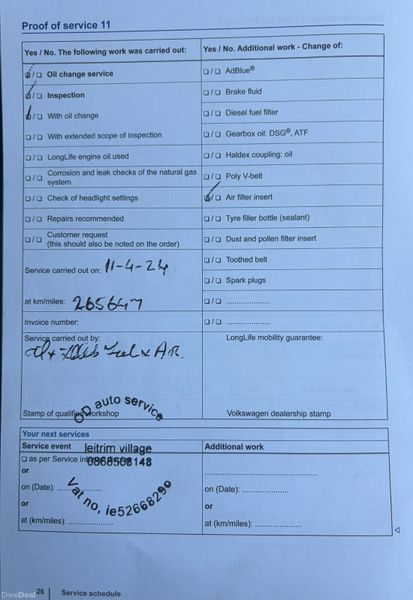 Proof of service 11
Yes / No. The following work was carried out:
Yes / No. Additional work - Change of:
☐/☐ Oil change service
☐/☐ AdBlue®
☐/☐ Inspection
☐/☐ Brake fluid
☐/☐ With oil change
☐/☐ Diesel fuel filter
☐/☐ With extended scope of inspection
☐/☐ Gearbox oil: DSG®, ATF
☐/☐ LongLife engine oil used
☐/☐ Haldex coupling: oil
☐/☐ Corrosion and leak checks of the natural gas
system
☐/☐ Poly V-belt
☐/☐ Check of headlight settings
☐/☐ Air filter insert
☐/☐ Repairs recommended
☐/☐ Tyre filler bottle (sealant)
☐/☐ Customer request
(this should also be noted on the order)
☐/☐ Dust and pollen filter insert
Service carried out on: 11-4-24
☐/☐ Toothed belt
☐/☐ Spark plugs
at km/miles: 265647
☐/☐ ....................
Invoice number:
☐/☐ ....................
Service carried out by:
LongLife mobility guarantee:
OD auto service
Stamp of qualified workshop
Volkswagen dealership stamp
Your next services
Service event
leitrim village
Additional work
☐ as per Service
0868508148
or
on (Date): ....................
on (Date): ....................
Vat no, ie52668290
or
or
at (km/miles): ....................
at (km/miles): ....................
26 Service schedule
DoneDeal